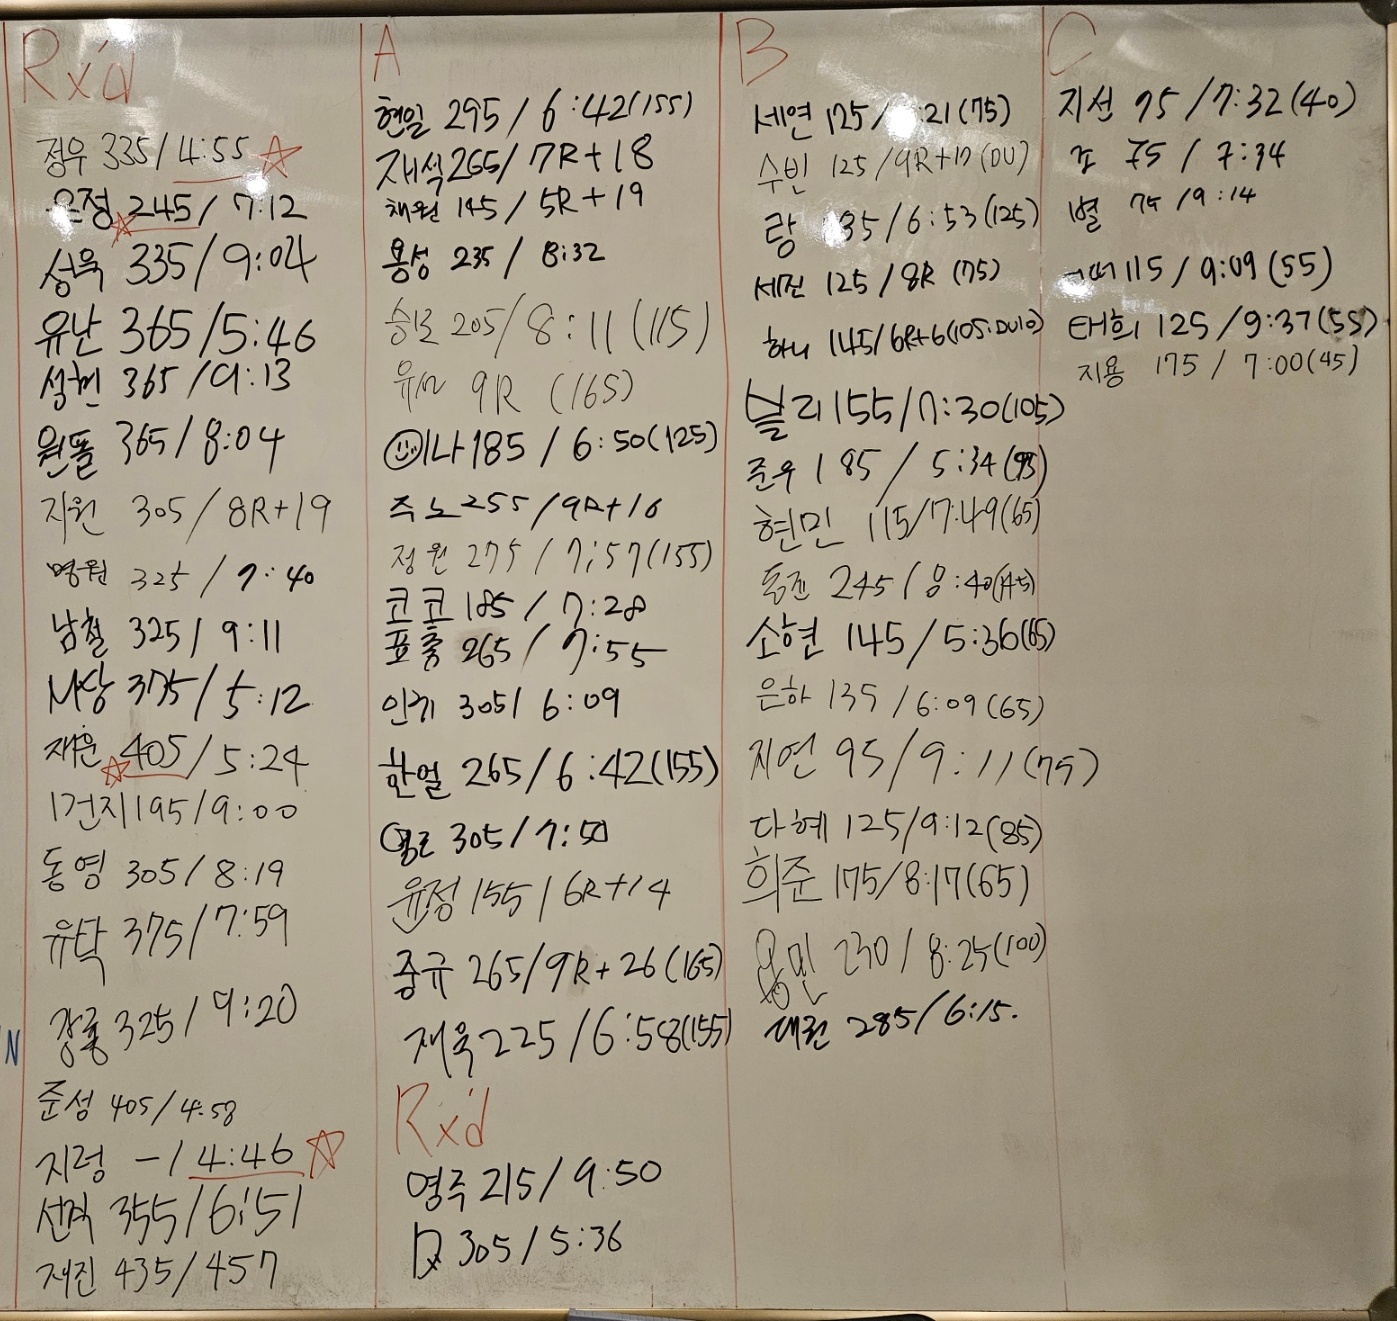 Rx'd
정우 335/4:55
은정 245/7:12
성욱 335/9:04
유난 365/5:46
성현 365/9:13
원돌 365/8:04
지원 305/8R+19
명원 325/7:40
남철 325/9:11
M상 375/5:12
재운 405/5:24
1건지 195/9:00
동영 305/8:19
유탁 375/7:59
325/9:20
준성 405/4:58
지령 -/4:46
선혁 355/6:51
재진 435/457
A
현일 295/6:42(155)
재석 265/7R+18
채원 145/5R+19
용성 235/8:32
205/8:11(115)
9R (165)
이나 185/6:50(125)
주노 255/9R+16
정원 275/7:57(155)
코코 185/7:28
표충 265/7:55
인귀 305/6:09
한얼 265/6:42(155)
305/7:50
윤정 155/6R+14
중규 265/9R+26(165)
재욱 225/6:58(155)
Rx'd
영주 215/9:50
305/5:36
B
세연 125/ :21(75)
수빈 125/9R+17(DU)
랑 35/6:53(125)
세진 125/8R (75)
하니 145/6R+6(105:DU10)
블리 155/7:30(105)
준우 185/5:34
현민 115/7:49(65)
동진 245/8:40
소현 145/5:36(65)
은하 135/6:09(65)
지연 95/9:11(75)
다혜 125/9:12(85)
희준 175/8:17(65)
용민 230/8:25(100)
대원 285/6:15.
C
지선 75/7:32(40)
조 75/7:34
별 75/9:14
115/9:09(55)
태희 125/9:37(55)
지용 175/7:00(45)
N